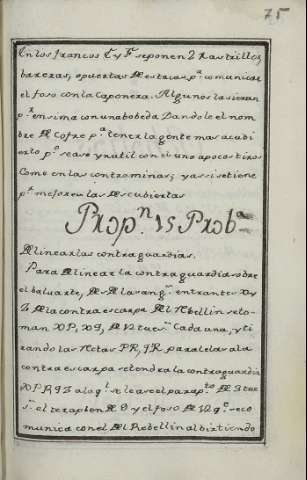 75
En los francos C y F se ponen 2 Rastrillos,
barreras, o puertas de estacas pª comunicar
el foso con la Caponera. Algunos la sierran
pr ensima con una bobeda Dandole el nom
bre de Cofre pª tener la gente mas a cubi
erto po se ase ynutil con el uno a pocos tiros
Como en las contraminas; y assi se tiene
pr mejores las descubiertas
Propn 15 Probª
Delinear las contraguardias.
Para delinear la contraguardia sobre
el baluarte, desde las angs entrantes
de la contraescarpa del Rebellin se to-
man de 12 tues Cada una, y ti
rando las Rectas PR, paralelas a la
contraescarpa se tendra la contraguardia
a la ql se le ase el parapto de 3 tue
s el terraplen de 9 y el foso de 12 qe se co
munica con el del Rebellin al birtiendo